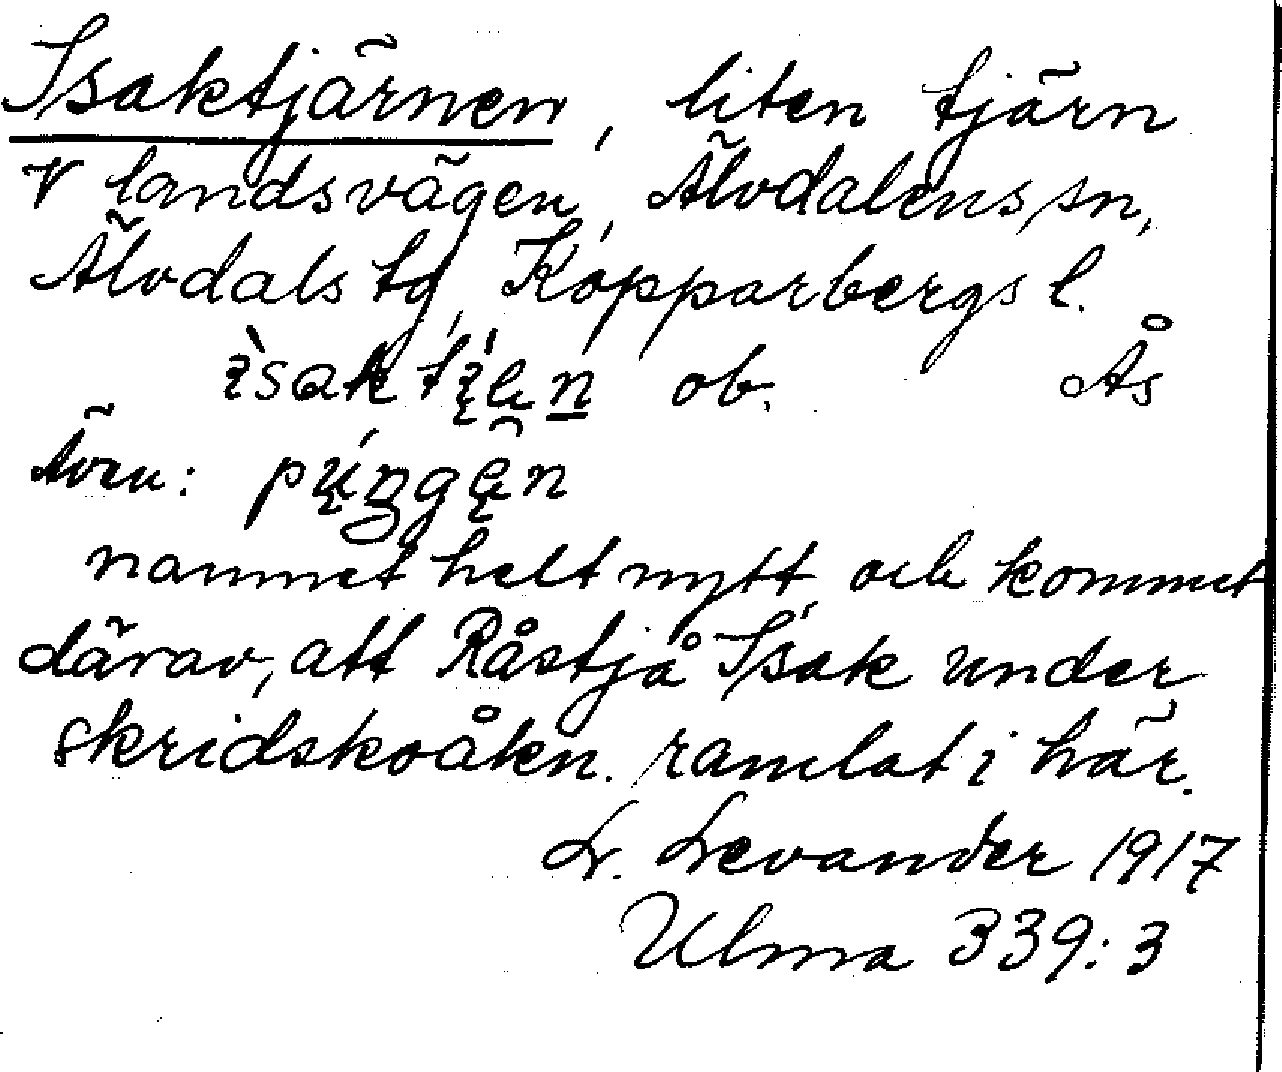 Isaktjärnen, liten tjärn
V landsvägen, Älvdalens sn,
Älvdals tg, Kopparbergs l.
ob. Ås
Även:
namnet helt nytt och kommet
därav, att Råstjå Isak under
skridskoåkn. ramlat i här.
L. Levander 1917
Ulma 339:3